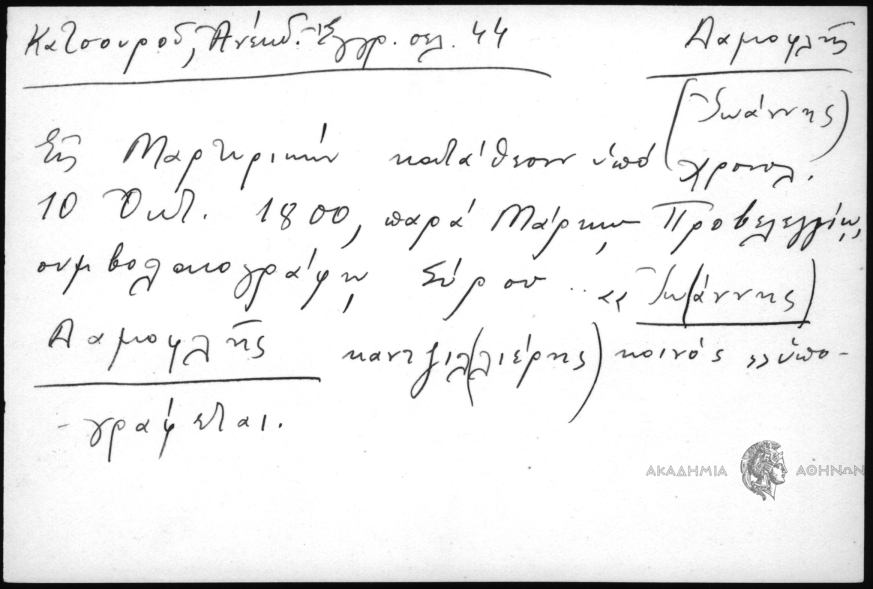 Κατσουροῦ, Ἀνέκδ. Ἔγγρ. σελ. 44
Δαμουλῆς
(Ἰωάννης)
Εἰς Μαρτυρικήν κατάθεσιν ὑπό χρονολ.
10 Ὀκτ. 1800, παρά Μάρκῳ Προβελεγγίῳ,
συμβολαιογράφῳ Σύρου .. « Ἰω(άννης)
Δαμουλῆς καντζιλ(λιέρης) κοινός » ὑπο-
-γράφεται.
ΑΚΑΔΗΜΙΑ ΑΘΗΝΩΝ